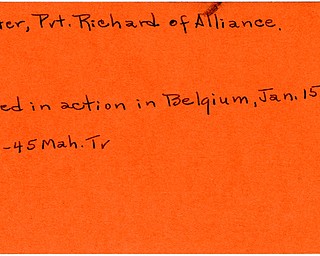 er, Pvt. Richard of Alliance.
ed in action in Belgium, Jan. 15
-45 Mah. Tr